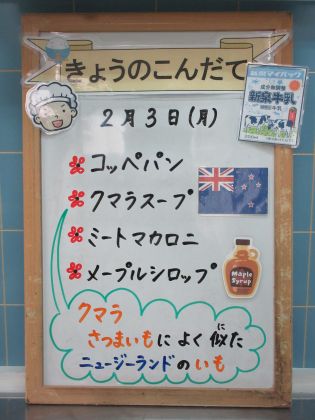 きょうのこんだて
2月3日(月)
コッペパン
クマラスープ
ミートマカロニ
メープルシロップ
Maple
Syrup
クマラ
さつまいもによく似た
に
ニュージーランドのいも
成分無調整
新泉牛乳